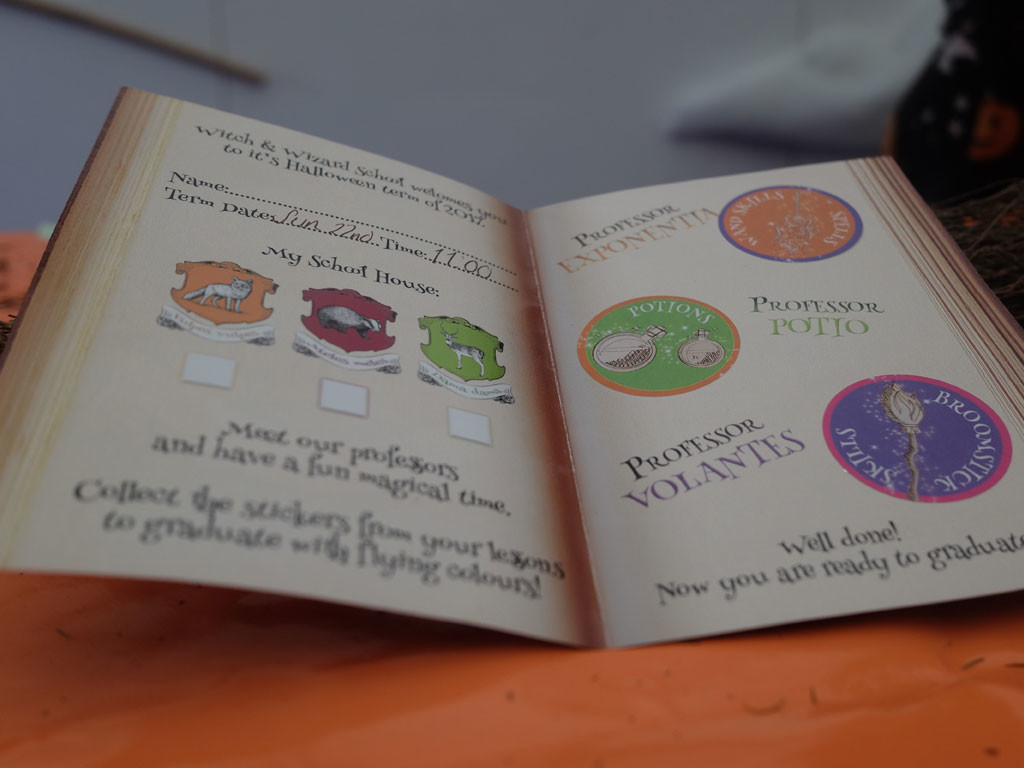 Witch & Wizard School welcomes you
to it's Halloween term of 2017.
Name:
Term Date: Sun. 22nd. Time: 11.00
My School House:
Meet our professors
and have a fun magical time.
Collect the stickers from your lessons
to graduate with flying colours!
PROFESSOR
EXPONENTIA
WAND SKILLS
SPELLS
POTIONS
PROFESSOR
POTIO
PROFESSOR
VOLANTES
BROOMSTICK
SKILLS
Well done!
Now you are ready to graduate